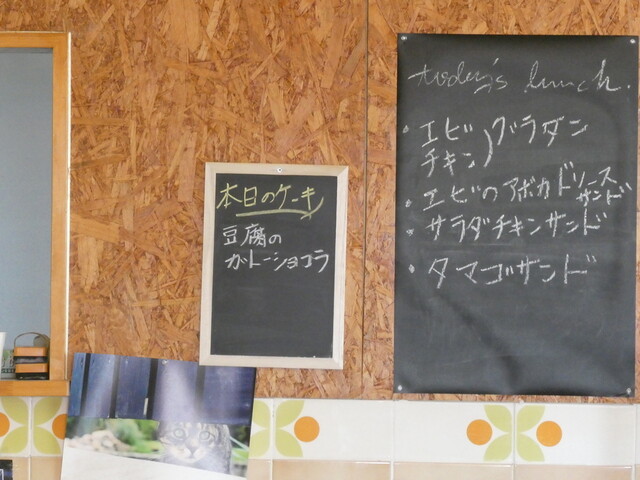 本日のケーキ
豆腐の
ガトーショコラ
today's lunch.
・エビ
チキン)グラタン
・エビのアボカドソース
サンド
・サラダチキンサンド
・タマゴサンド